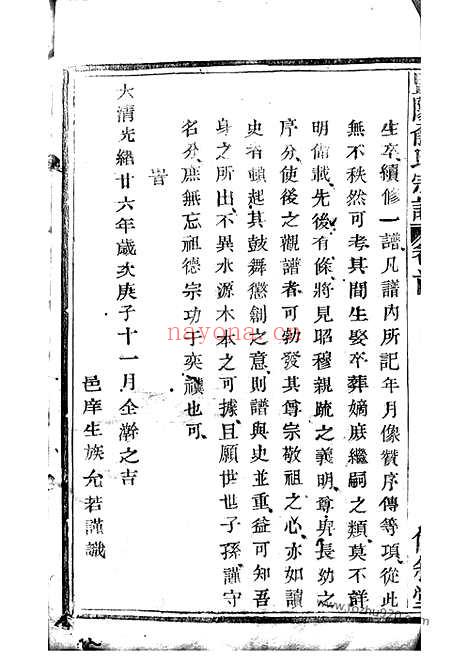 生卒續修一譜凡譜內所記年月像贊序傳等項從此
無不秩然可考其間生娶卒葬嫡庶繼嗣之類莫不詳
明備載先後有條將見昭穆親疏之義明尊卑長幼之
序分使後之觀譜者可勃發其尊宗敬祖之心亦如讀
史者頓起其鼓舞懲創之意則譜與史並重益可知吾
身之所出不異水源木本之可據且願世世子孫謹守
名分庶無忘祖德宗功于奕禩也可
旹
大清光緒廿六年歲次庚子十一月仝澣之吉
邑庠生族允若謹識
nayona.cn